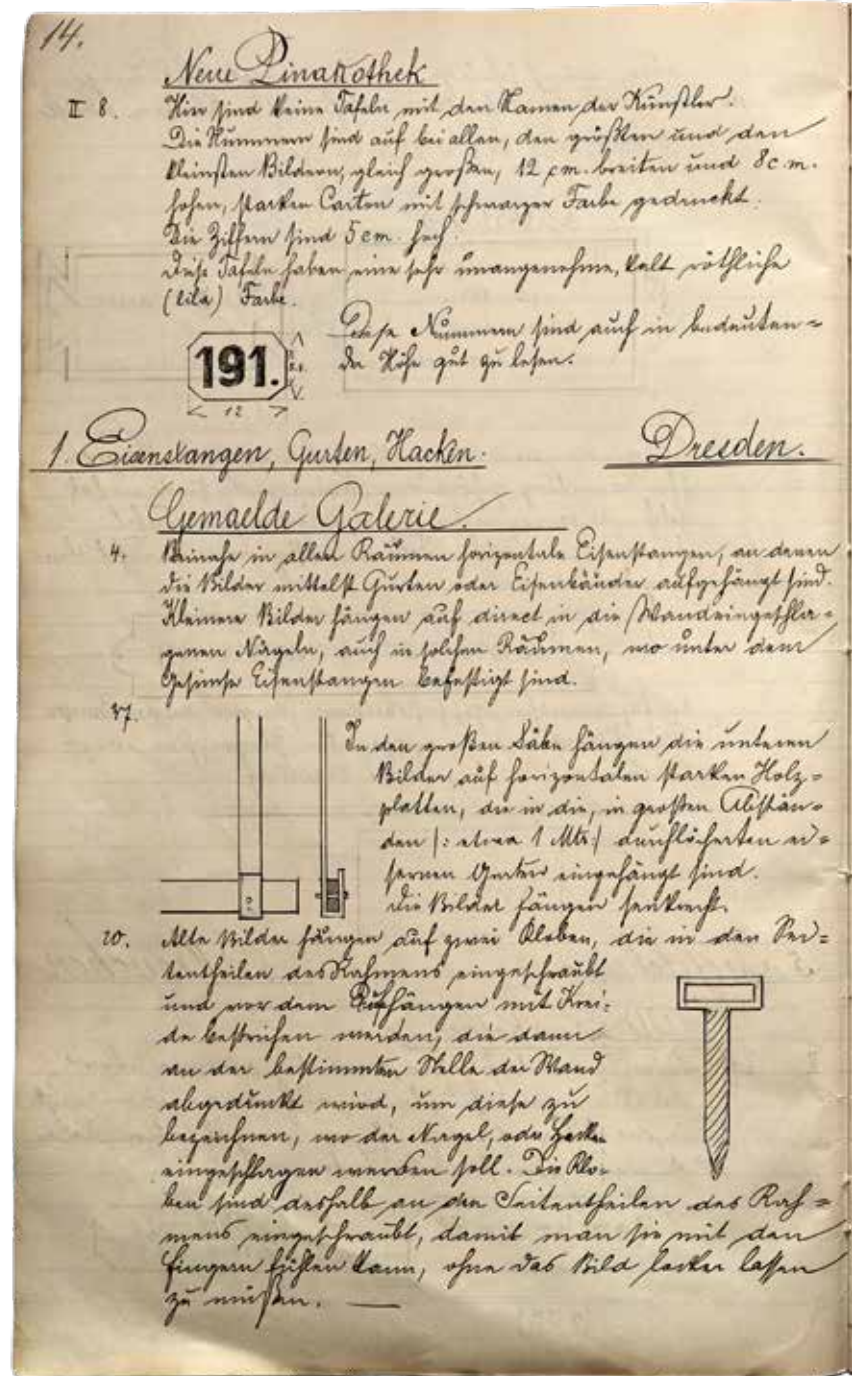 14.
Neue Pinakothek
II 8. Hier sind keine Tafeln mit den Namen der Künstler.
Die Nummern sind auf bei allen, den größten und den
kleinsten Bildern, gleich großen, 12 cm. breiten und 8 c.m.
hohen, starken Carton mit schwarzer Farbe gedruckt.
Die Ziffern sind 5 cm. hoch.
Diese Tafeln haben eine sehr unangenehme, kalt röthliche
(lila) Farbe.
Diese Nummern sind auch in bedeuten=
der Höhe gut zu lesen.
191.
12
1. Eisenstangen, Gurten, Hacken. Dresden.
Gemaelde Galerie.
4. Beinahe in allen Räumen horizontale Eisenstangen, an denen
die Bilder mittelst Gurten oder Eisenbänder aufgehängt sind.
Kleinere Bilder hängen auf direct in die Wand eingeschla=
genen Nägeln, auch in solchen Räumen, wo unter dem
Gesimse Eisenstangen befestigt sind.
37. In den großen Säle hängen die unteren
Bilder auf horizontalen starken Holz=
platten, die in die, in großen Abstän=
den |: etwa 1 Mtr :| durchlöcherten ei=
sernen Gurten eingehängt sind.
Die Bilder hängen senkrecht.
20. Alte Bilder hängen auf zwei Kloben, die in den Sei=
tentheilen des Rahmens eingeschraubt
und vor dem Aufhängen mit Krei=
de bestrichen werden, die dann
an der bestimmten Stelle der Wand
abgedrückt wird, um diese zu
bezeichnen, wo der Nagel, oder Hacken
eingeschlagen werden soll. Die Klo=
ben sind deshalb an den Seitentheilen des Rah=
mens eingeschraubt, damit man sie mit den
Fingern fühlen kann, ohne das Bild locker lassen
zu müßen.